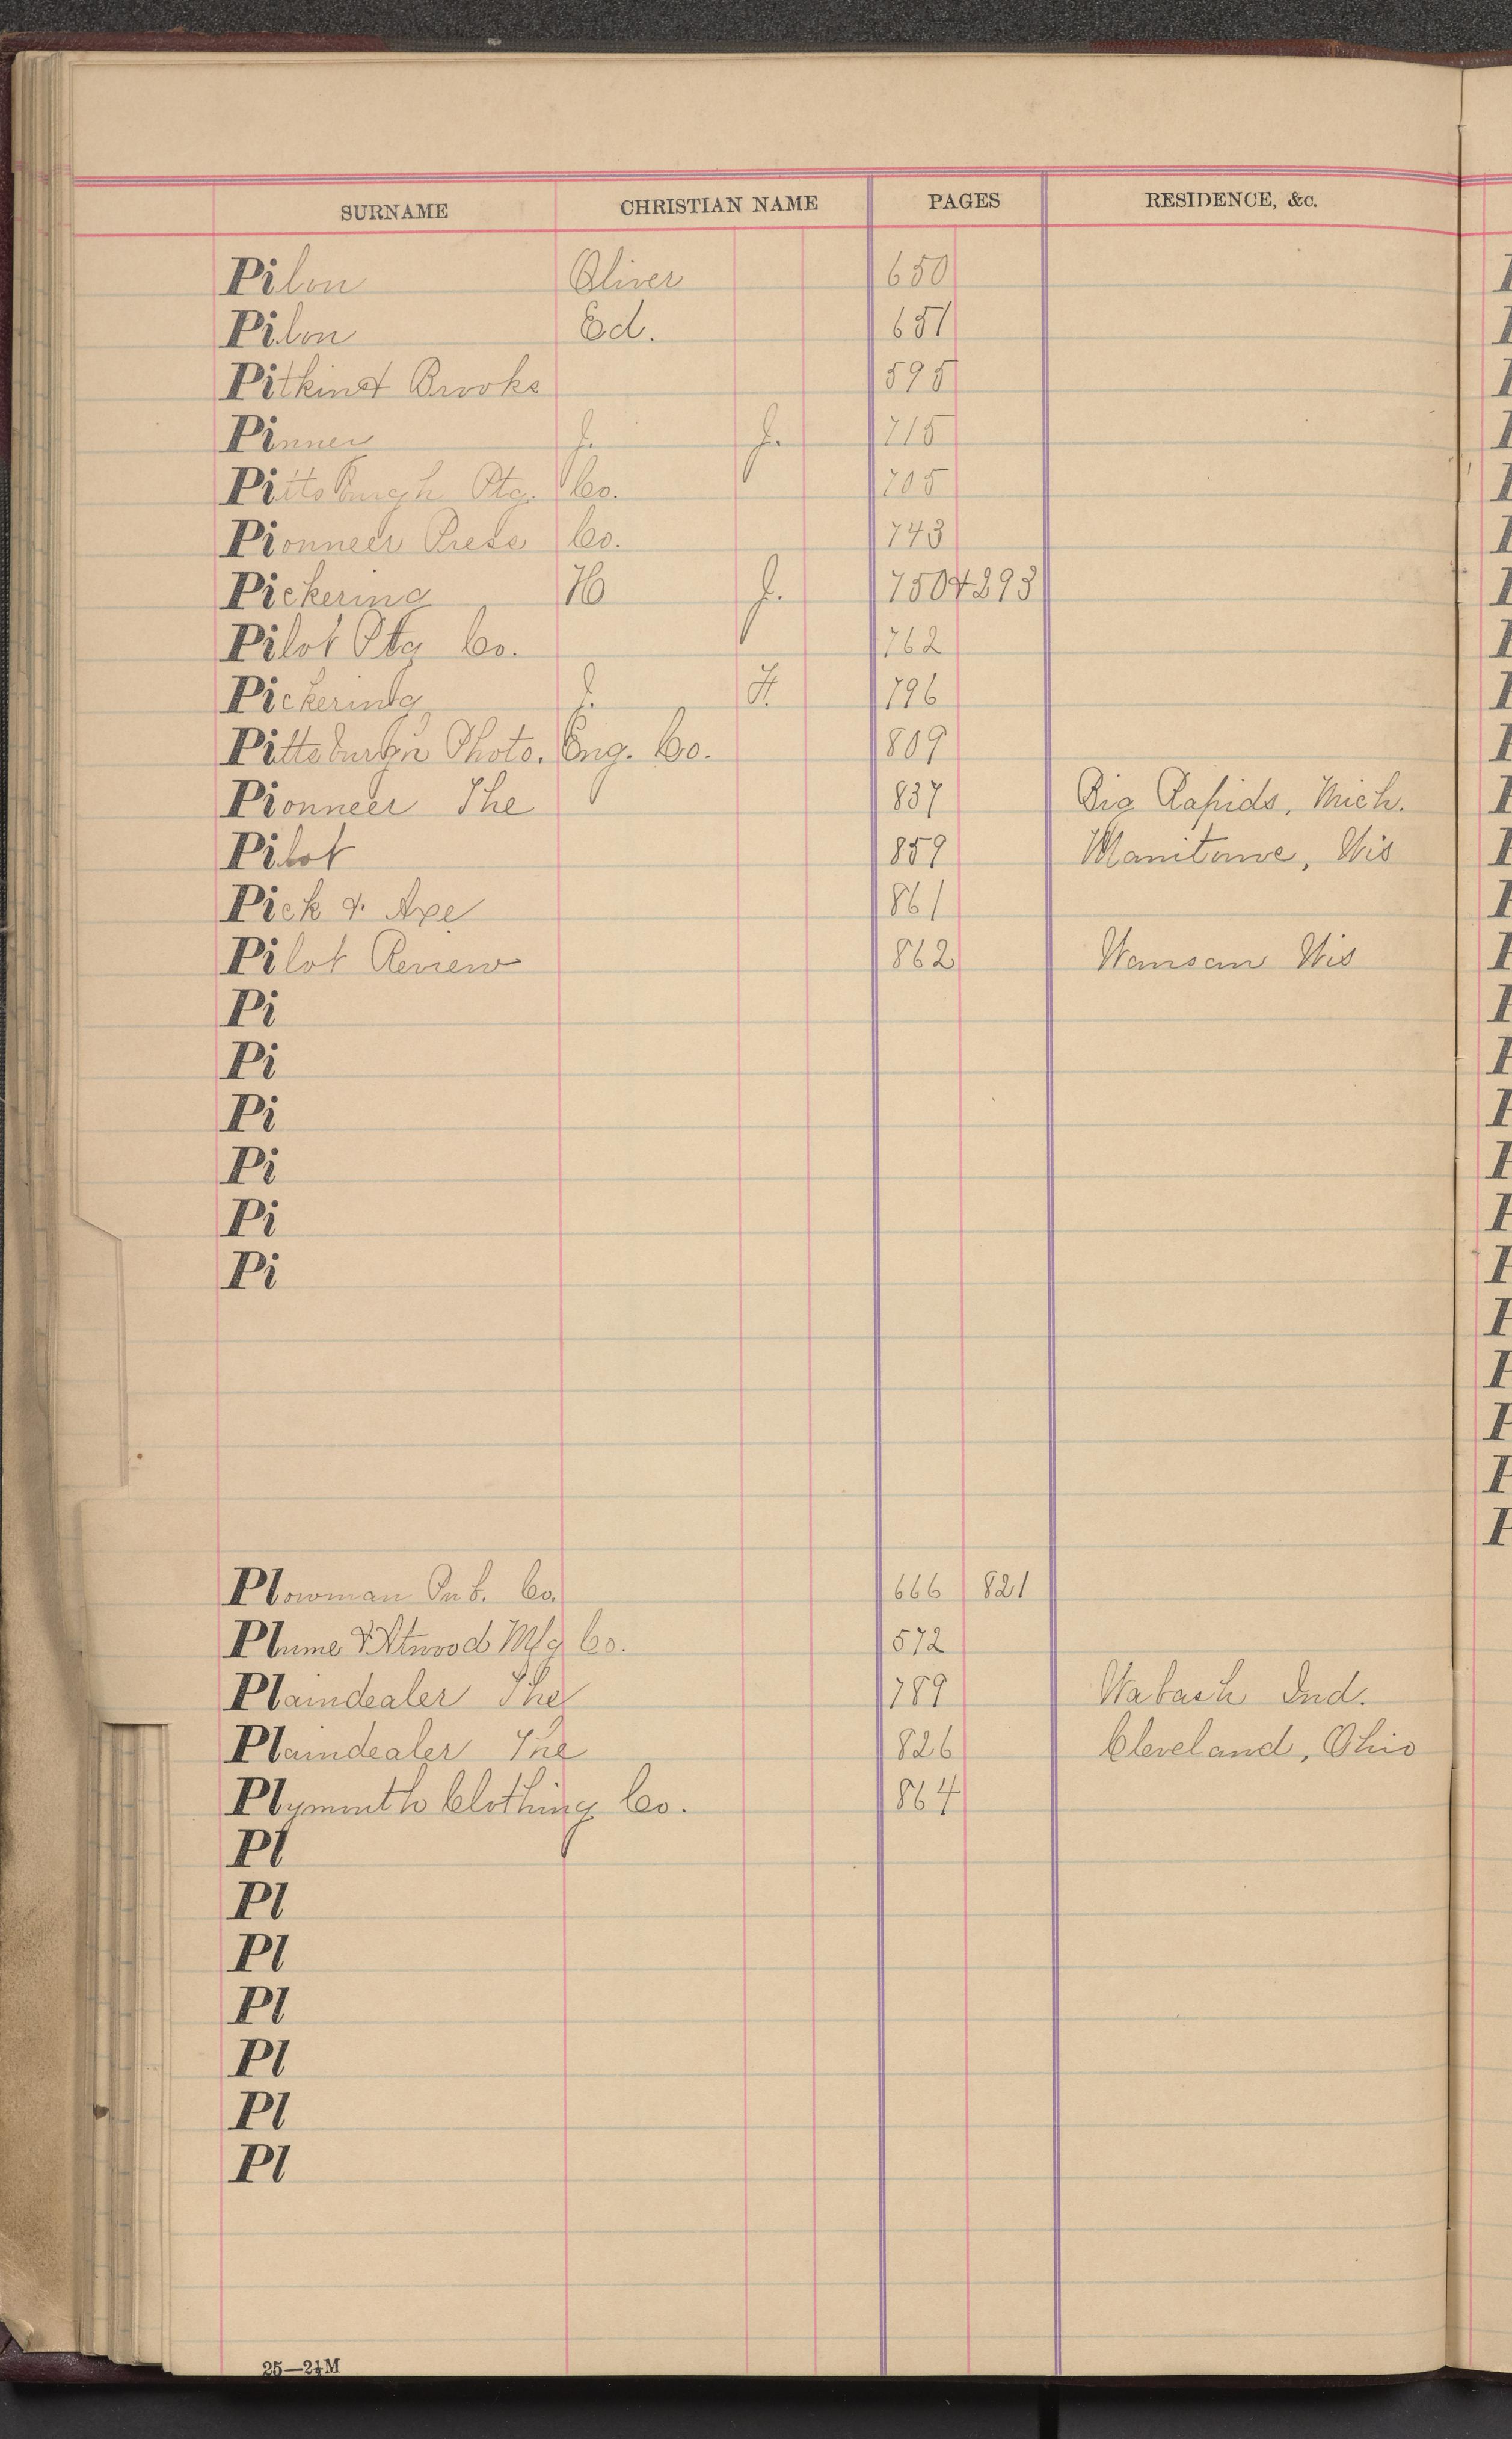 SURNAME CHRISTIAN NAME PAGES RESIDENCE, &c.
Pilon Oliver 650
Pilon Ed. 651
Pitkin & Brooks 595
Pinner J. J. 715
Pittsburgh Ptg. Co. 705
Pionneer Press Co. 743
Pickering H J. 750 & 293
Pilot Ptg Co. 762
Pickering J. H. 796
Pittsburgh Photo. Eng. Co. 809
Pionneer The 837 Big Rapids, Mich.
Pilot 859 Manitowoc, Wis
Pick & Axe 861
Pilot Review 862 Wausau Wis
Pi
Pi
Pi
Pi
Pi
Pi
Plowman Pub. Co. 666 821
Plume & Atwood Mfg Co. 572
Plaindealer The 789 Wabash Ind.
Plaindealer The 826 Cleveland, Ohio
Plymouth Clothing Co. 864
Pl
Pl
Pl
Pl
Pl
Pl
Pl
25—2½M